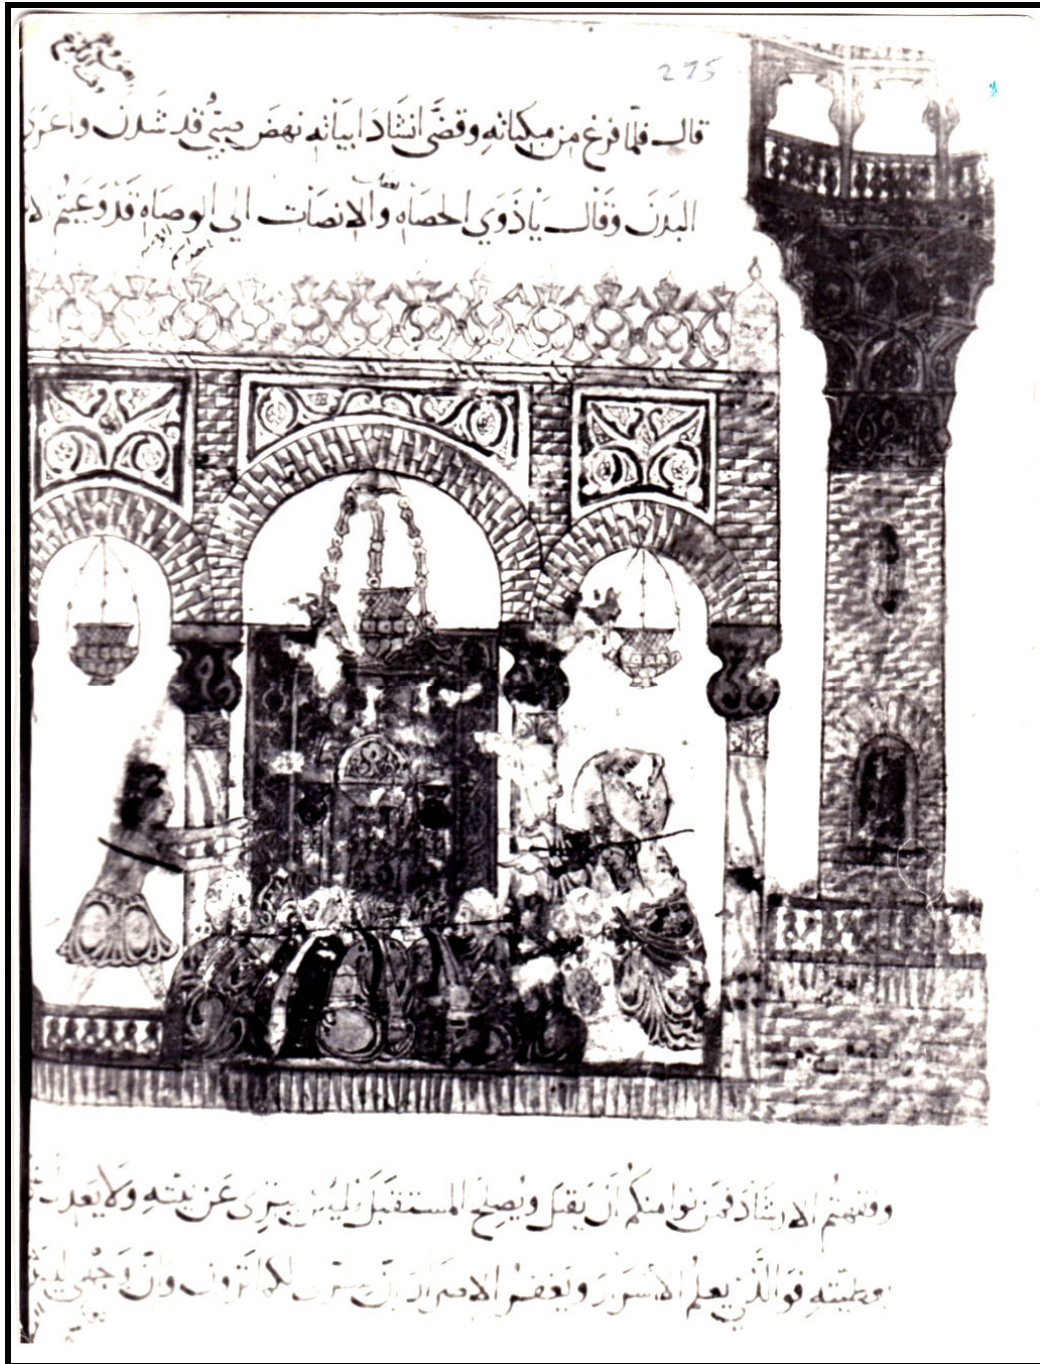 295
قال فلمّا فرغ من مبكياتهِ وقضَى انشَادَ ابيَاتهِ نهضَ صبىّ قد شدن واعرى
البَدَنَ وقال يَا ذَوَى الحصَاة والانصَات الى الوصاة قد وَعَيتُم الا
وفقهتُم الارشَادَ فمَن نوا منكم ان يَقبَل ويُصلِحَ المستقبَلَ فليُبِن ببرّى عَن نيّتهِ ولا يَعدل
بعطيّتهِ فوالّذى يعلمُ الاسْرَارَ ويَغفرُ الاصرارَ انّ سرّى لكما ترون وانّ وَجْهى